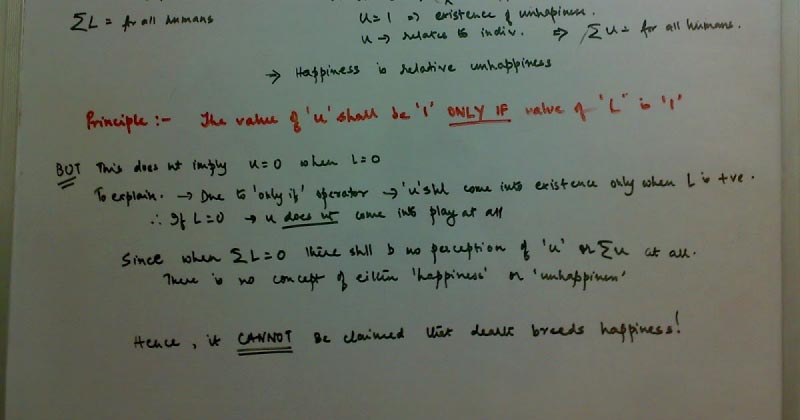 ΣL = for all humans
u=1 => existence of unhappiness.
u → relates to indiv. => Σu = for all humans.
→ Happiness is relative unhappiness
Principle :- The value of 'u' shall be '1' ONLY IF value of 'L' is '1'
BUT This does nt imply u=0 when L=0
To explain. → Due to 'only if' operator → 'u' shl come into existence only when L is +ve.
∴ If L=0 → u does nt come into play at all
Since when ΣL=0 there shll b no perception of 'u' or Σu at all.
There is no concept of either 'happiness' or 'unhappiness'
Hence, it CANNOT be claimed that death breeds happiness!